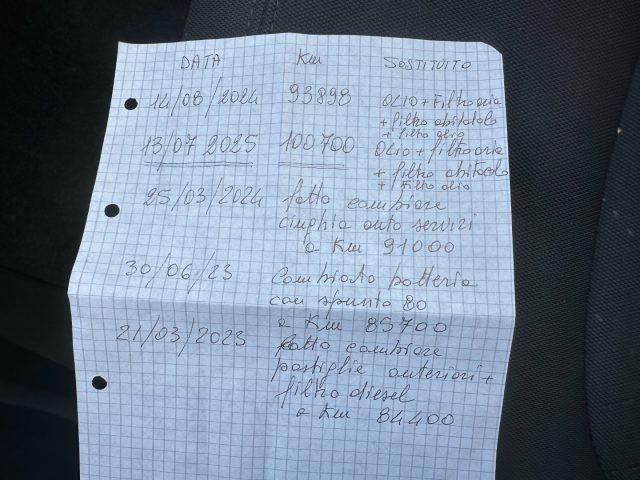 DATA Km SOSTITUITO
14/08/2024 93898 OLIO + Filtro aria
+ filtro abitacolo
+ filtro olio
13/07 2025 100700 OLIO + filtro aria
+ filtro abitacolo
+ Filtro olio
25/03/2024 fatto cambiare
cinghia auto servizi
a Km 91000
30/06/23 Cambiato batteria
con spunto 80
a Km 85700
21/03/2023 fatto cambiare
pastiglie anteriori +
filtro diesel
a Km 84400